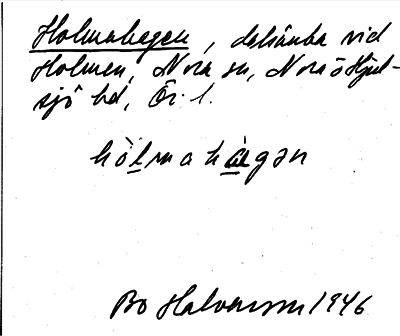 Holmahagen, delsänka vid
Holmen, Nora sn, Nora o Hjul-
sjö hd, Ör. l.
hòlmahàgən
Bo Halvarsson 1946